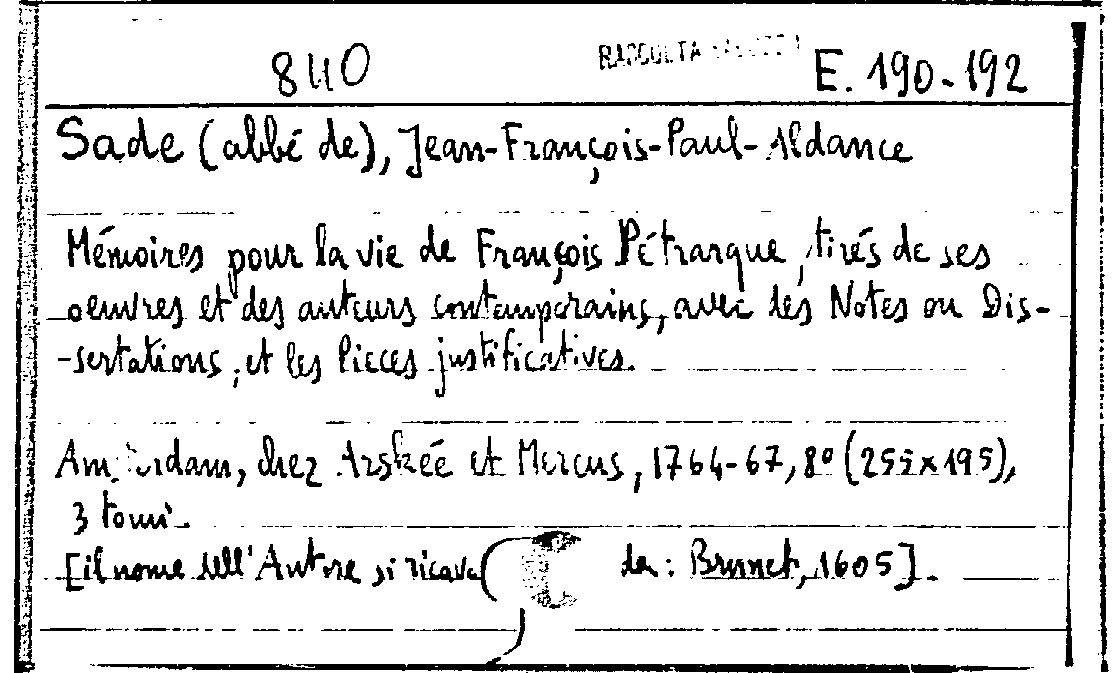 840 RACCOLTA E. 190-192
Sade (abbé de), Jean-François-Paul-Aldance
Mémoires pour la vie de François Pétrarque, tirés de ses
oeuvres et des auteurs contemporains, avec les Notes ou Dis-
-sertations, et les Pieces justificatives.
Amsterdam, chez Arskée et Mercus, 1764-67, 8º (255x195),
3 tomi.
[il nome dell'Autore si ricava da: Brunet, 1605].